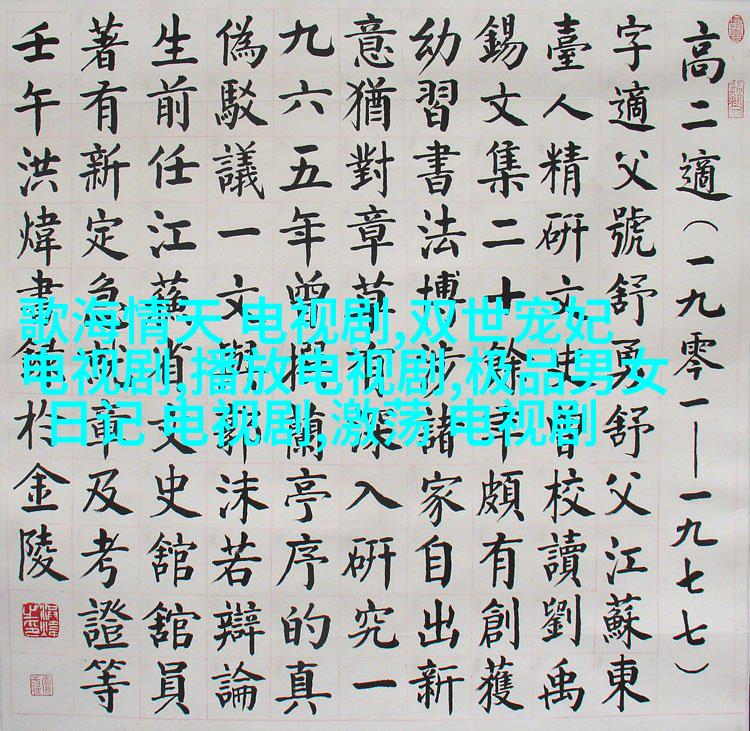 高二適（一九零一——一九七七）
字適父號舒勇舒父江蘇東
臺人精研文史曾校讀劉禹
錫文集二十餘年頗有創獲
幼習書法博涉諸家自出新
意猶對章草有深入研究一
九六五年曾撰蘭亭序的真
偽駁議一文與郭沫若辯論
生前任江蘇省文史舘舘員
著有新定急就章及考證等
壬午洪煒書錄於金陵
歌海情天 电视剧,双世宠妃
电视剧,播放电视剧,极品男女
日记 电视剧,激荡 电视剧